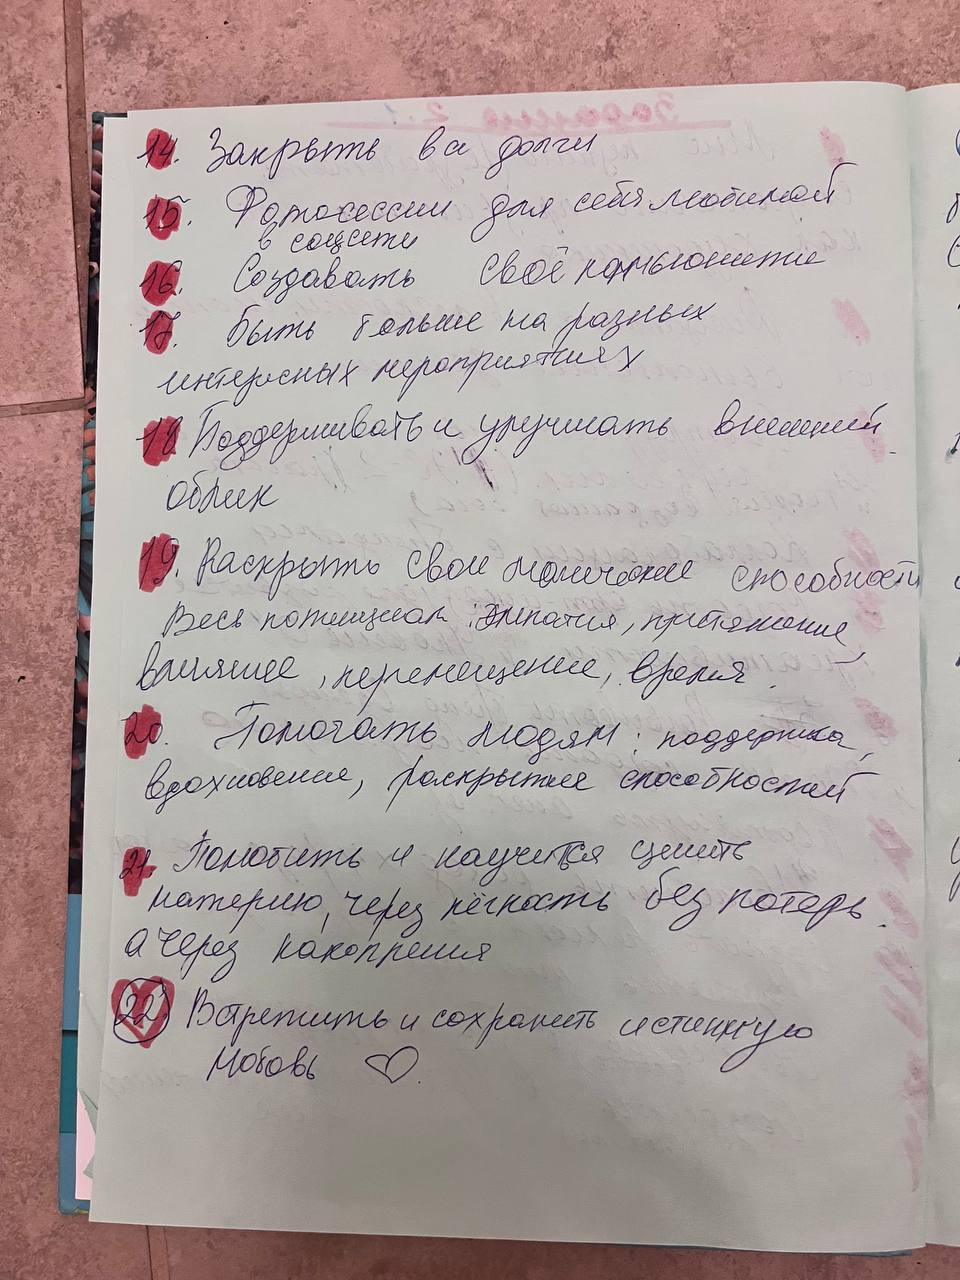 14. Закрыть вa долги
15. Фотосессии для себя любимой
в соцсети
16. Создавать своё комьюнити
17. Быть больше на разных
интересных мероприятиях
18. Поддерживать и улучшать внешний
облик
19. Раскрыть свои магические способности
Весь потенциал: эмпатия, притяжение,
влияние, перемещение, время.
20. Помогать людям: поддержка,
вдохновение, раскрытие способностей
21. Полюбить и научится ценить
материю, через лёгкость без потерь.
а через накопления
22. Встретить и сохранить истинную
любовь ♡.